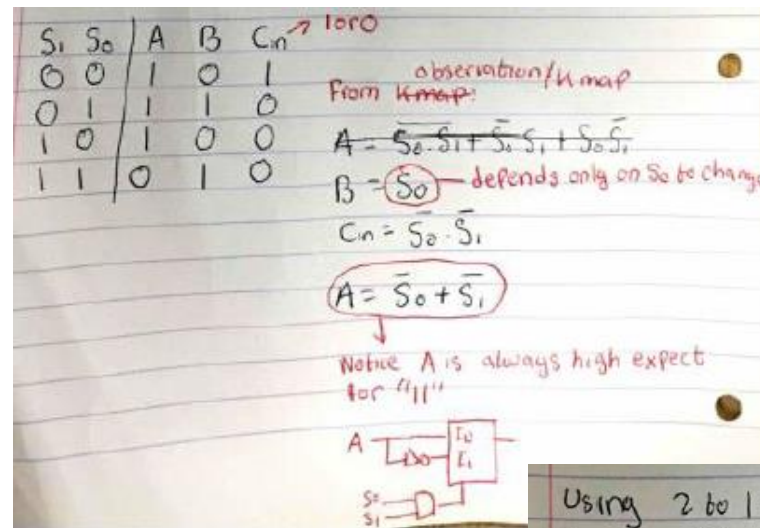 S₁ S₀ | A B Cin → 1 or 0
0 0 | 1 0 1
0 1 | 1 1 0
1 0 | 1 0 0
1 1 | 0 1 0
observation/Kmap
From Kmap:
A = S̅₀.S̅₁ + S̅₀ S₁ + S₀ S̅₁
B = S₀ — depends only on S₀ to change
Cin = S̅₀ . S̅₁
A = S̅₀ + S̅₁
Notice A is always high expect
for "11"
A I₀
I₁
S₀
S₁
Using 2 to 1